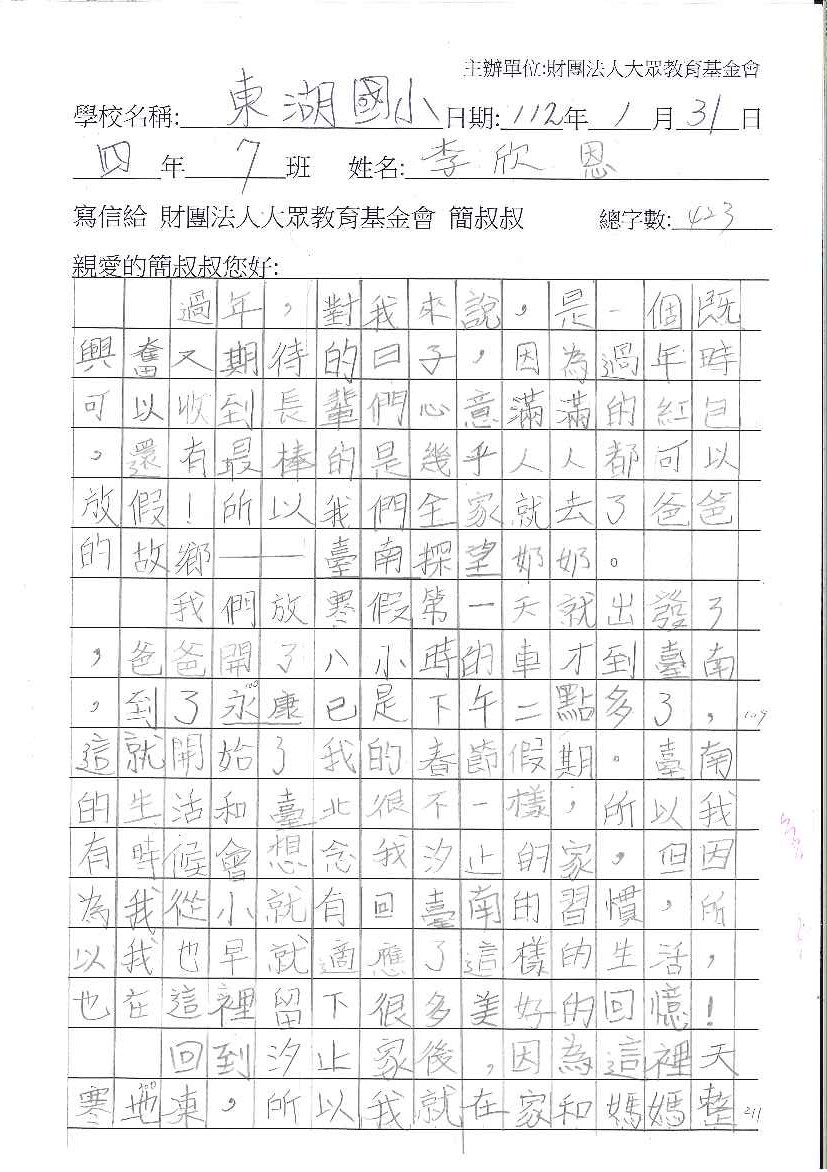 主辦單位:財團法人大眾教育基金會
學校名稱: 東湖國小 日期: 112年 1 月 31 日
四 年 7 班 姓名: 李欣恩
寫信給 財團法人大眾教育基金會 簡叔叔 總字數: 423
親愛的簡叔叔您好:
過年，對我來說，是一個既
興奮又期待的日子，因為過年時
可以收到長輩們心意滿滿的紅包
。還有最棒的是幾乎人人都可以
放假！所以我們全家就去了爸爸
的故鄉——臺南探望奶奶。
我們放寒假第一天就出發了
，爸爸開了八小時的車才到臺南
，到了永康已是下午二點多了， 100 109
這就開始了我的春節假期。臺南
的生活和臺北很不一樣，所以我
有時候會想念我汐止的家，但因
為我從小就有回臺南的習慣，所
以我也早就適應了這樣的生活，
也在這裡留下很多美好的回憶！
回到汐止家後，因為這裡天
寒地凍，所以我就在家和媽媽整 200 211